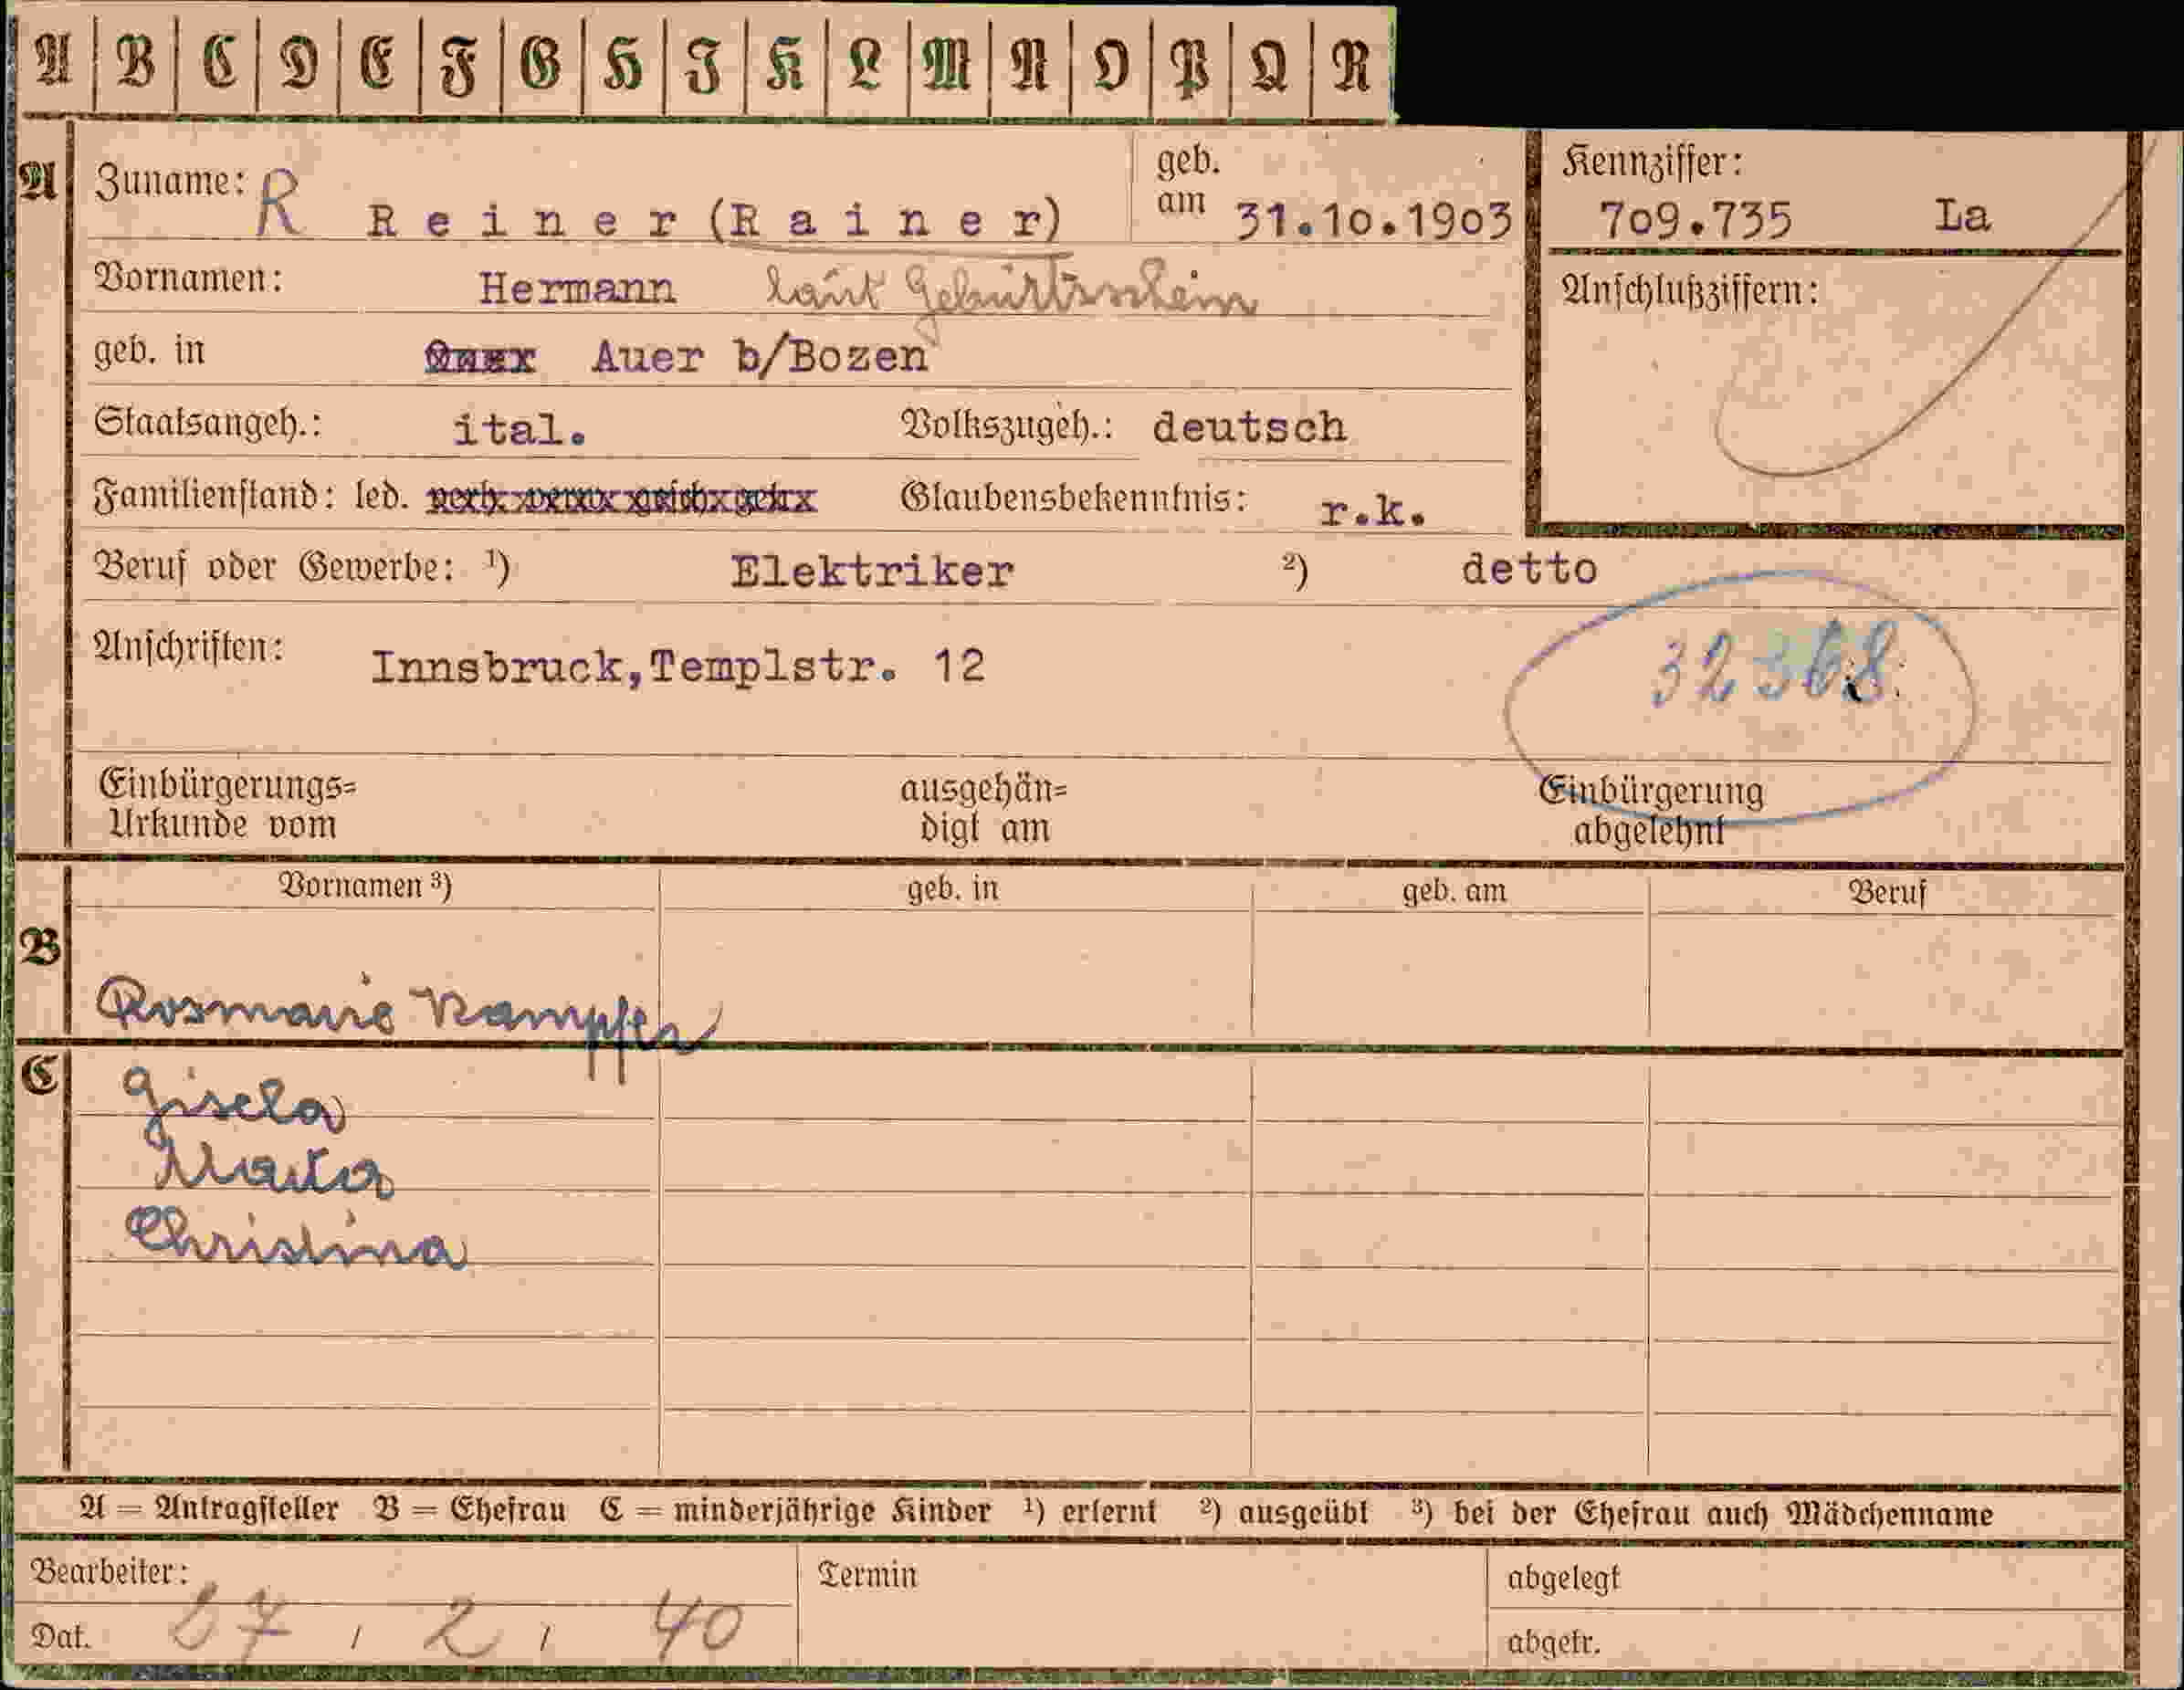 A B C D E F G H I K L M N O P Q R
A Zuname: R Reiner (Rainer) geb. am 31.10.1903 Kennziffer: 709.735 La
Vornamen: Hermann laut Geburtsschein Anschlußziffern:
geb. in Auer b/Bozen
Staatsangeh.: ital. Volkszugeh.: deutsch
Familienstand: led. verh. verw. gesch. getr. Glaubensbekenntnis: r.k.
Beruf oder Gewerbe: 1) Elektriker 2) detto
Anschriften: Innsbruck,Templstr. 12 32368
Einbürgerungs= Urkunde vom ausgehän= digt am Einbürgerung abgelehnt
Vornamen 3) geb. in geb. am Beruf
B Rosmarie Kampfer
C Gisela
Maria
Christina
A = Antragsteller B = Ehefrau C = minderjährige Kinder 1) erlernt 2) ausgeübt 3) bei der Ehefrau auch Mädchenname
Bearbeiter: Termin abgelegt
Dat. 27 / 2 / 40 abgetr.